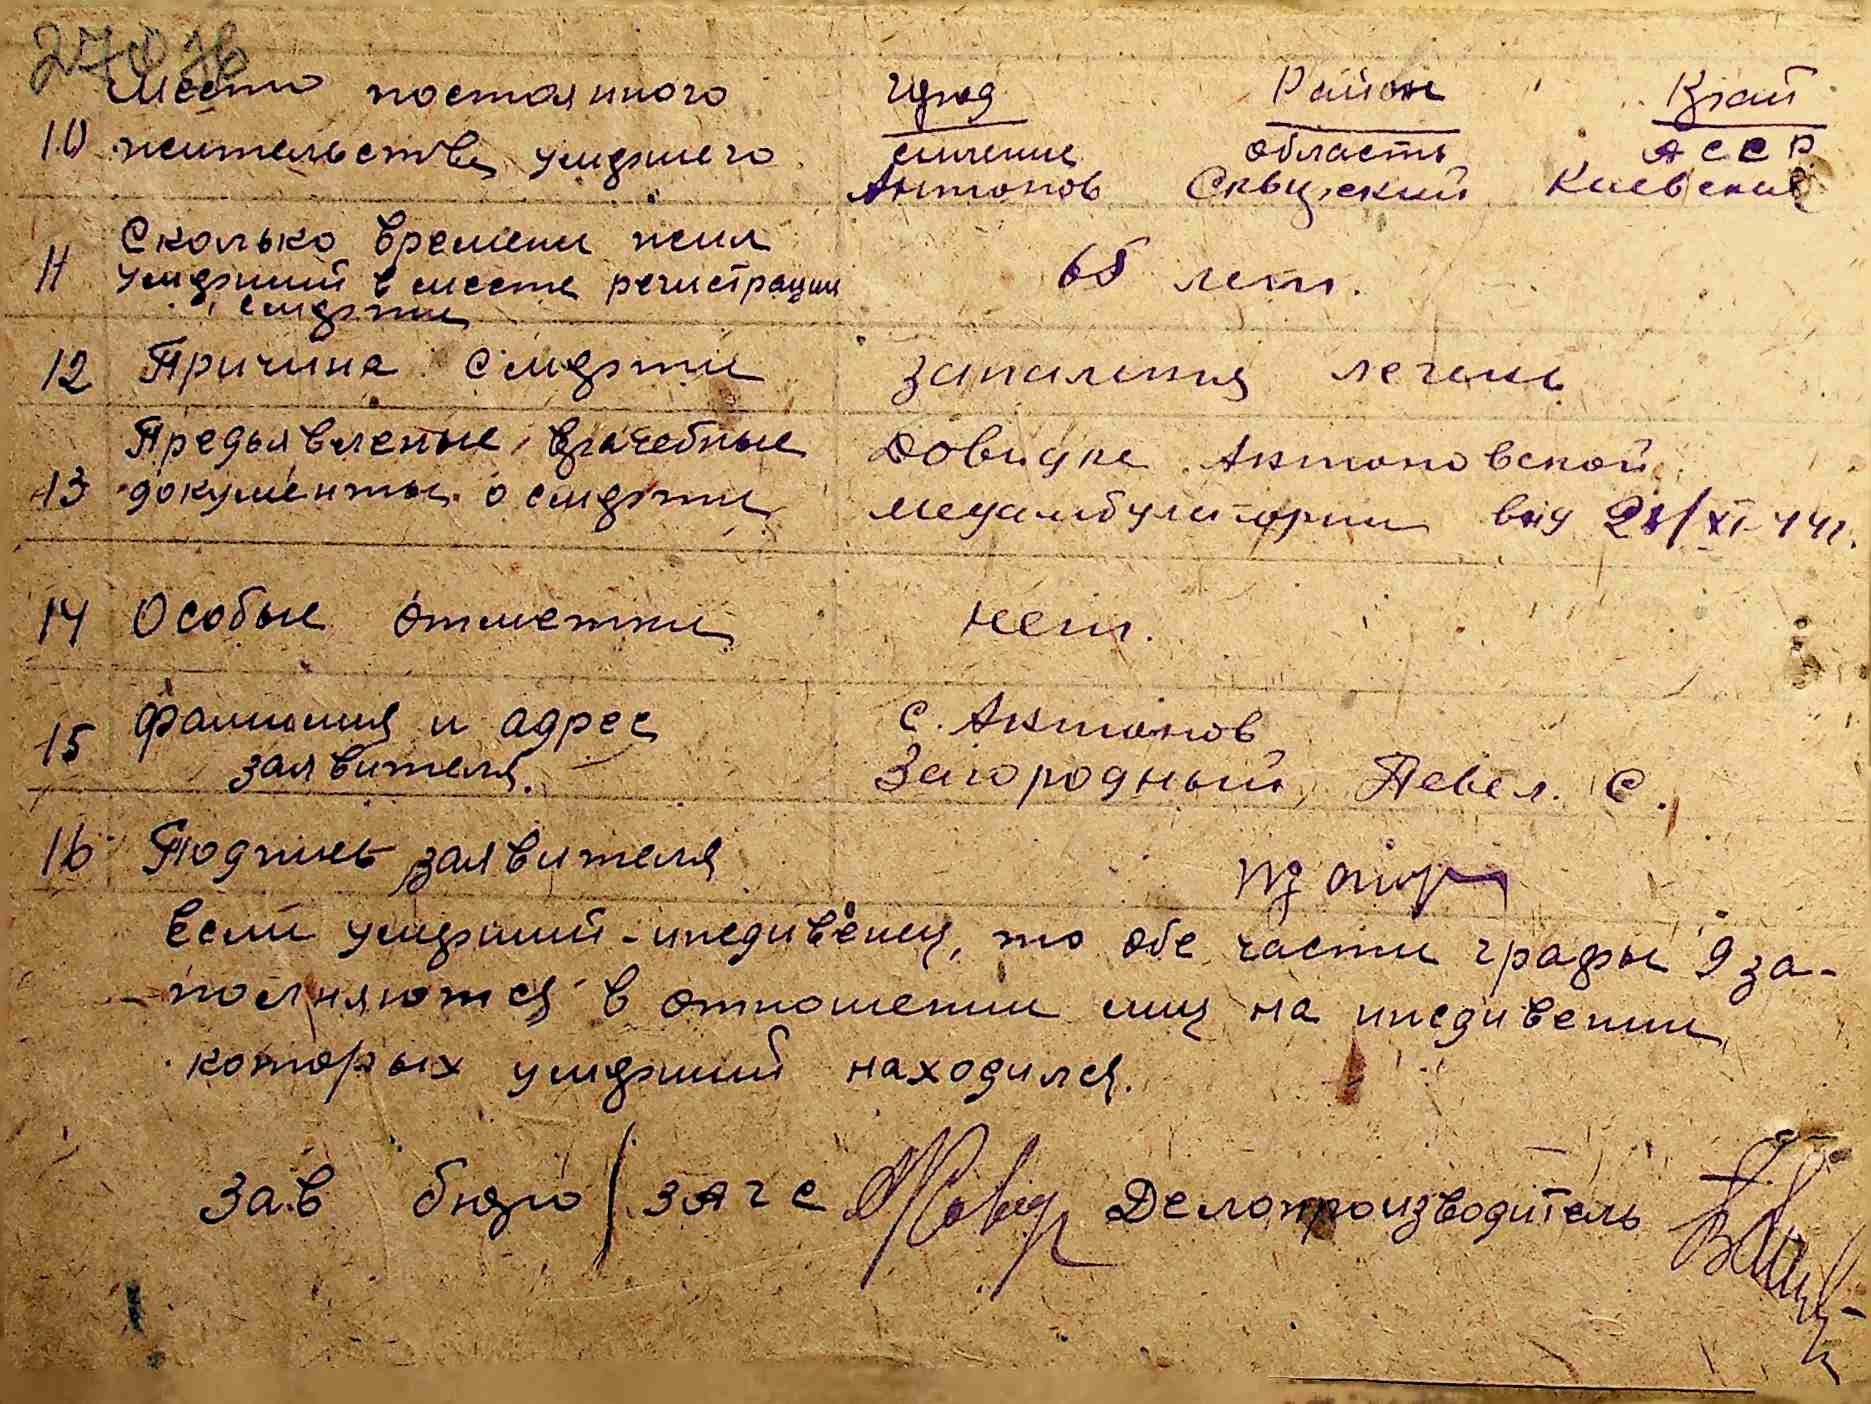 27076
Место постоянного город Район Край
10 жительства умершего селение область АССР
Антонов Сквирский Киевская
Сколько времени жил
11 умерший в месте регистрации 65 лет.
смерти
12 Причина смерти запаления легень
Предъявленые врачебные Довидка Антоновской
13 документы о смерти медамбулатории вид 21/XI-44г.
14 Особые отметки нет.
15 фамилия и адрес с. Антонов
заявителя. Загородный Павел. С.
16 Подпись заявителя
Если умерший-иждивенец, то обе части графы 9 за-
полняются в отношении лиц на иждивении
которых умерший находился.
Зав бюро загс Делопроизводитель